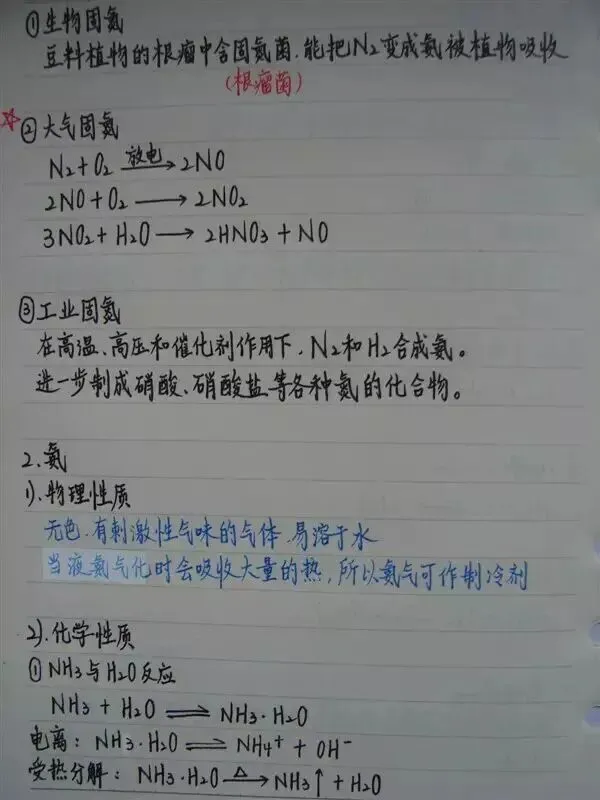 ①生物固氮
豆料植物的根瘤中含固氮菌.能把N₂变成氨被植物吸收
(根瘤菌)
☆②大气固氮
N₂+O₂ 放电→ 2NO
2NO+O₂ → 2NO₂
3NO₂+H₂O → 2HNO₃+NO
③工业固氮
在高温、高压和催化剂作用下,N₂和H₂合成氨。
进一步制成硝酸、硝酸盐等各种氮的化合物。
2.氨
1).物理性质
无色.有刺激性气味的气体.易溶于水
当液氨气化时会吸收大量的热,所以氨气可作制冷剂
2).化学性质
①NH₃与H₂O反应
NH₃ + H₂O ⇌ NH₃·H₂O
电离: NH₃·H₂O ⇌ NH₄⁺ + OH⁻
受热分解: NH₃·H₂O △→ NH₃↑ + H₂O